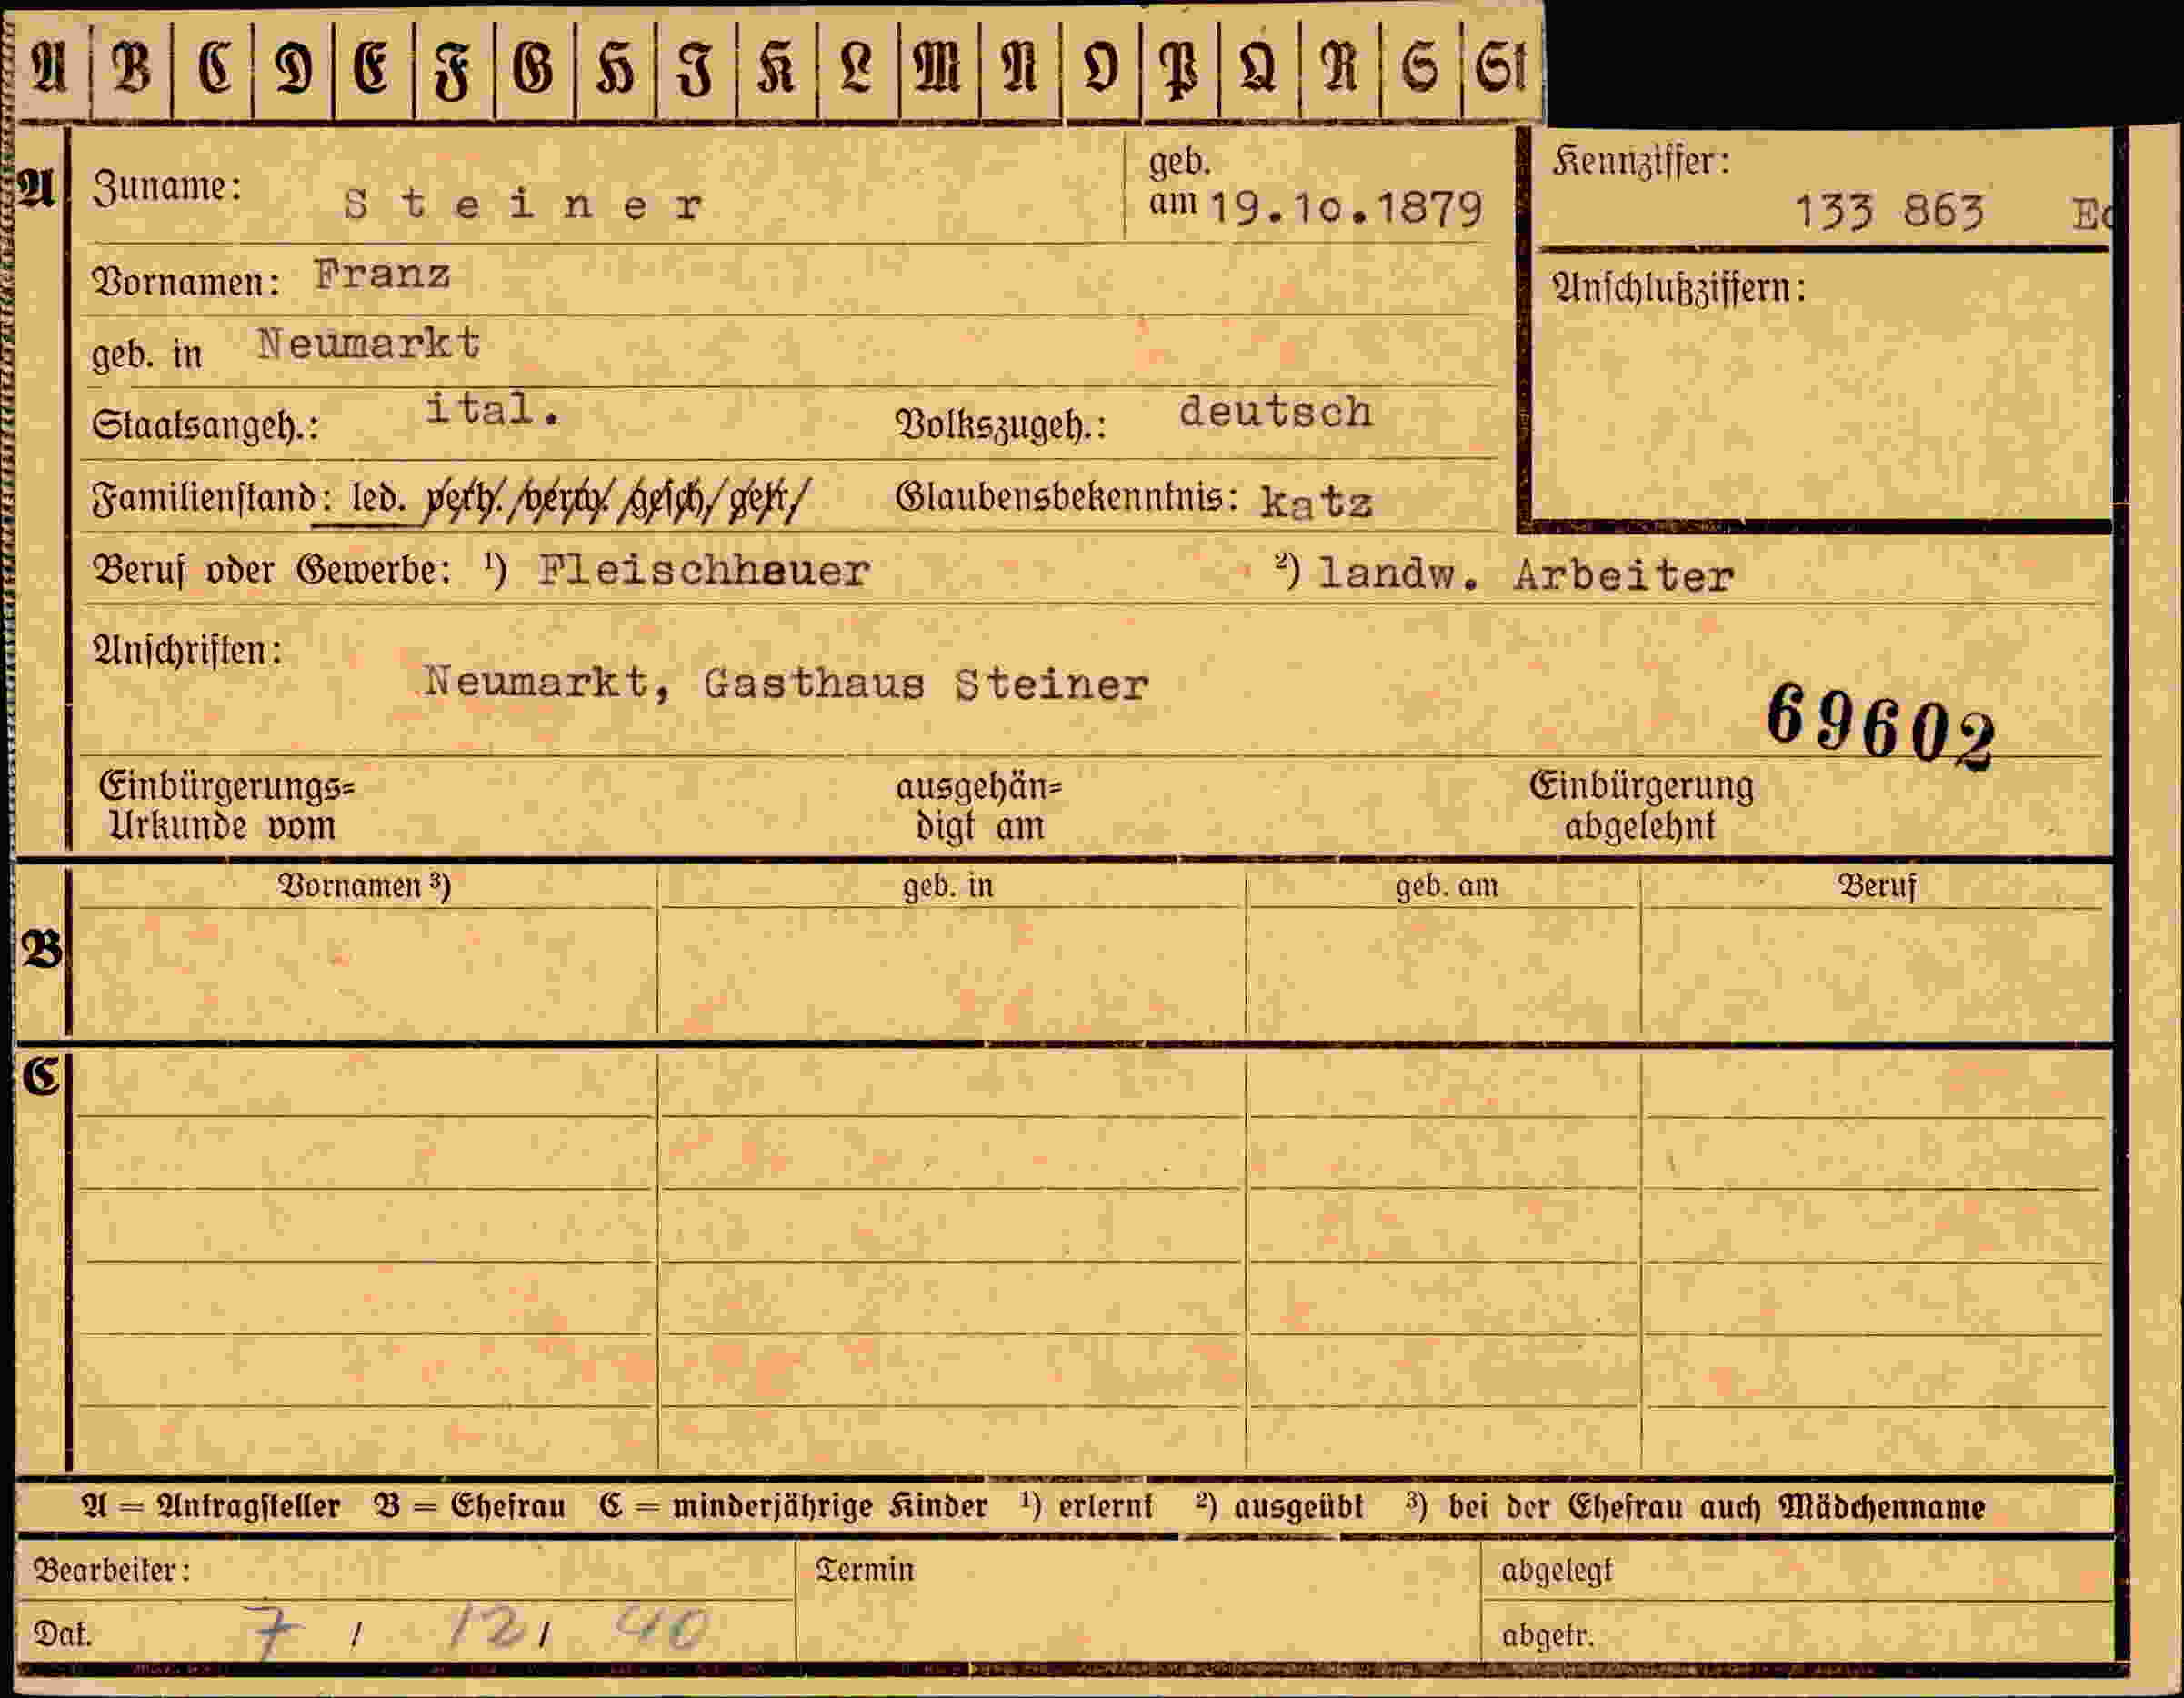 A B C D E F G H I K L M N O P Q R S St
A
Zuname: Steiner
geb. am 19.10.1879
Kennziffer: 133 863
Vornamen: Franz
Anschlußziffern:
geb. in Neumarkt
Staatsangeh.: ital. Volkszugeh.: deutsch
Familienstand: led. verh./verw./gesch/getr/ Glaubensbekenntnis: katz
Beruf oder Gewerbe: ¹) Fleischhauer ²) landw. Arbeiter
Anschriften:
Neumarkt, Gasthaus Steiner
69602
Einbürgerungs=
Urkunde vom
ausgehän=
digt am
Einbürgerung
abgelehnt
B
Vornamen ³) geb. in geb. am Beruf
C
A = Antragsteller B = Ehefrau C = minderjährige Kinder ¹) erlernt ²) ausgeübt ³) bei der Ehefrau auch Mädchenname
Bearbeiter: Termin abgelegt
Dat. 7 / 12 / 40 abgetr.